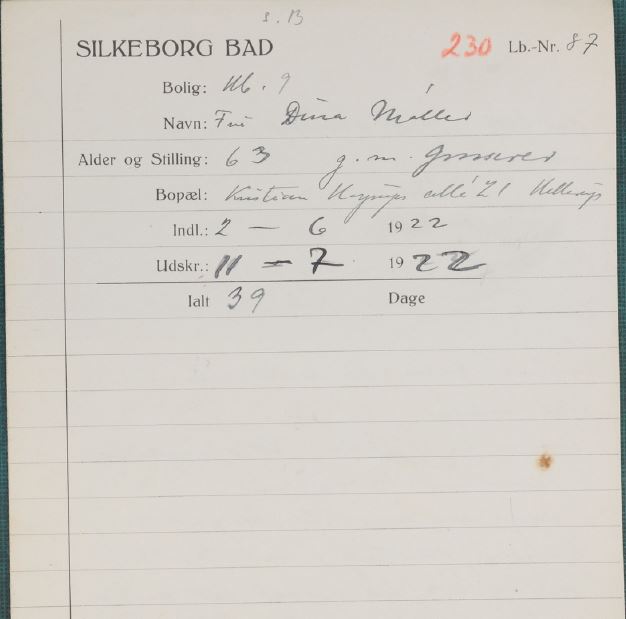 S. B
SILKEBORG BAD 230 Lb.-Nr. 87
Bolig: 9
Navn: Fru Dina Møller
Alder og Stilling: 63 g. m. Grosserer
Bopæl: Kristian allé 21 Hellerup
Indl.: 2 — 6 1922
Udskr.: 11 — 7 1922
Ialt 39 Dage